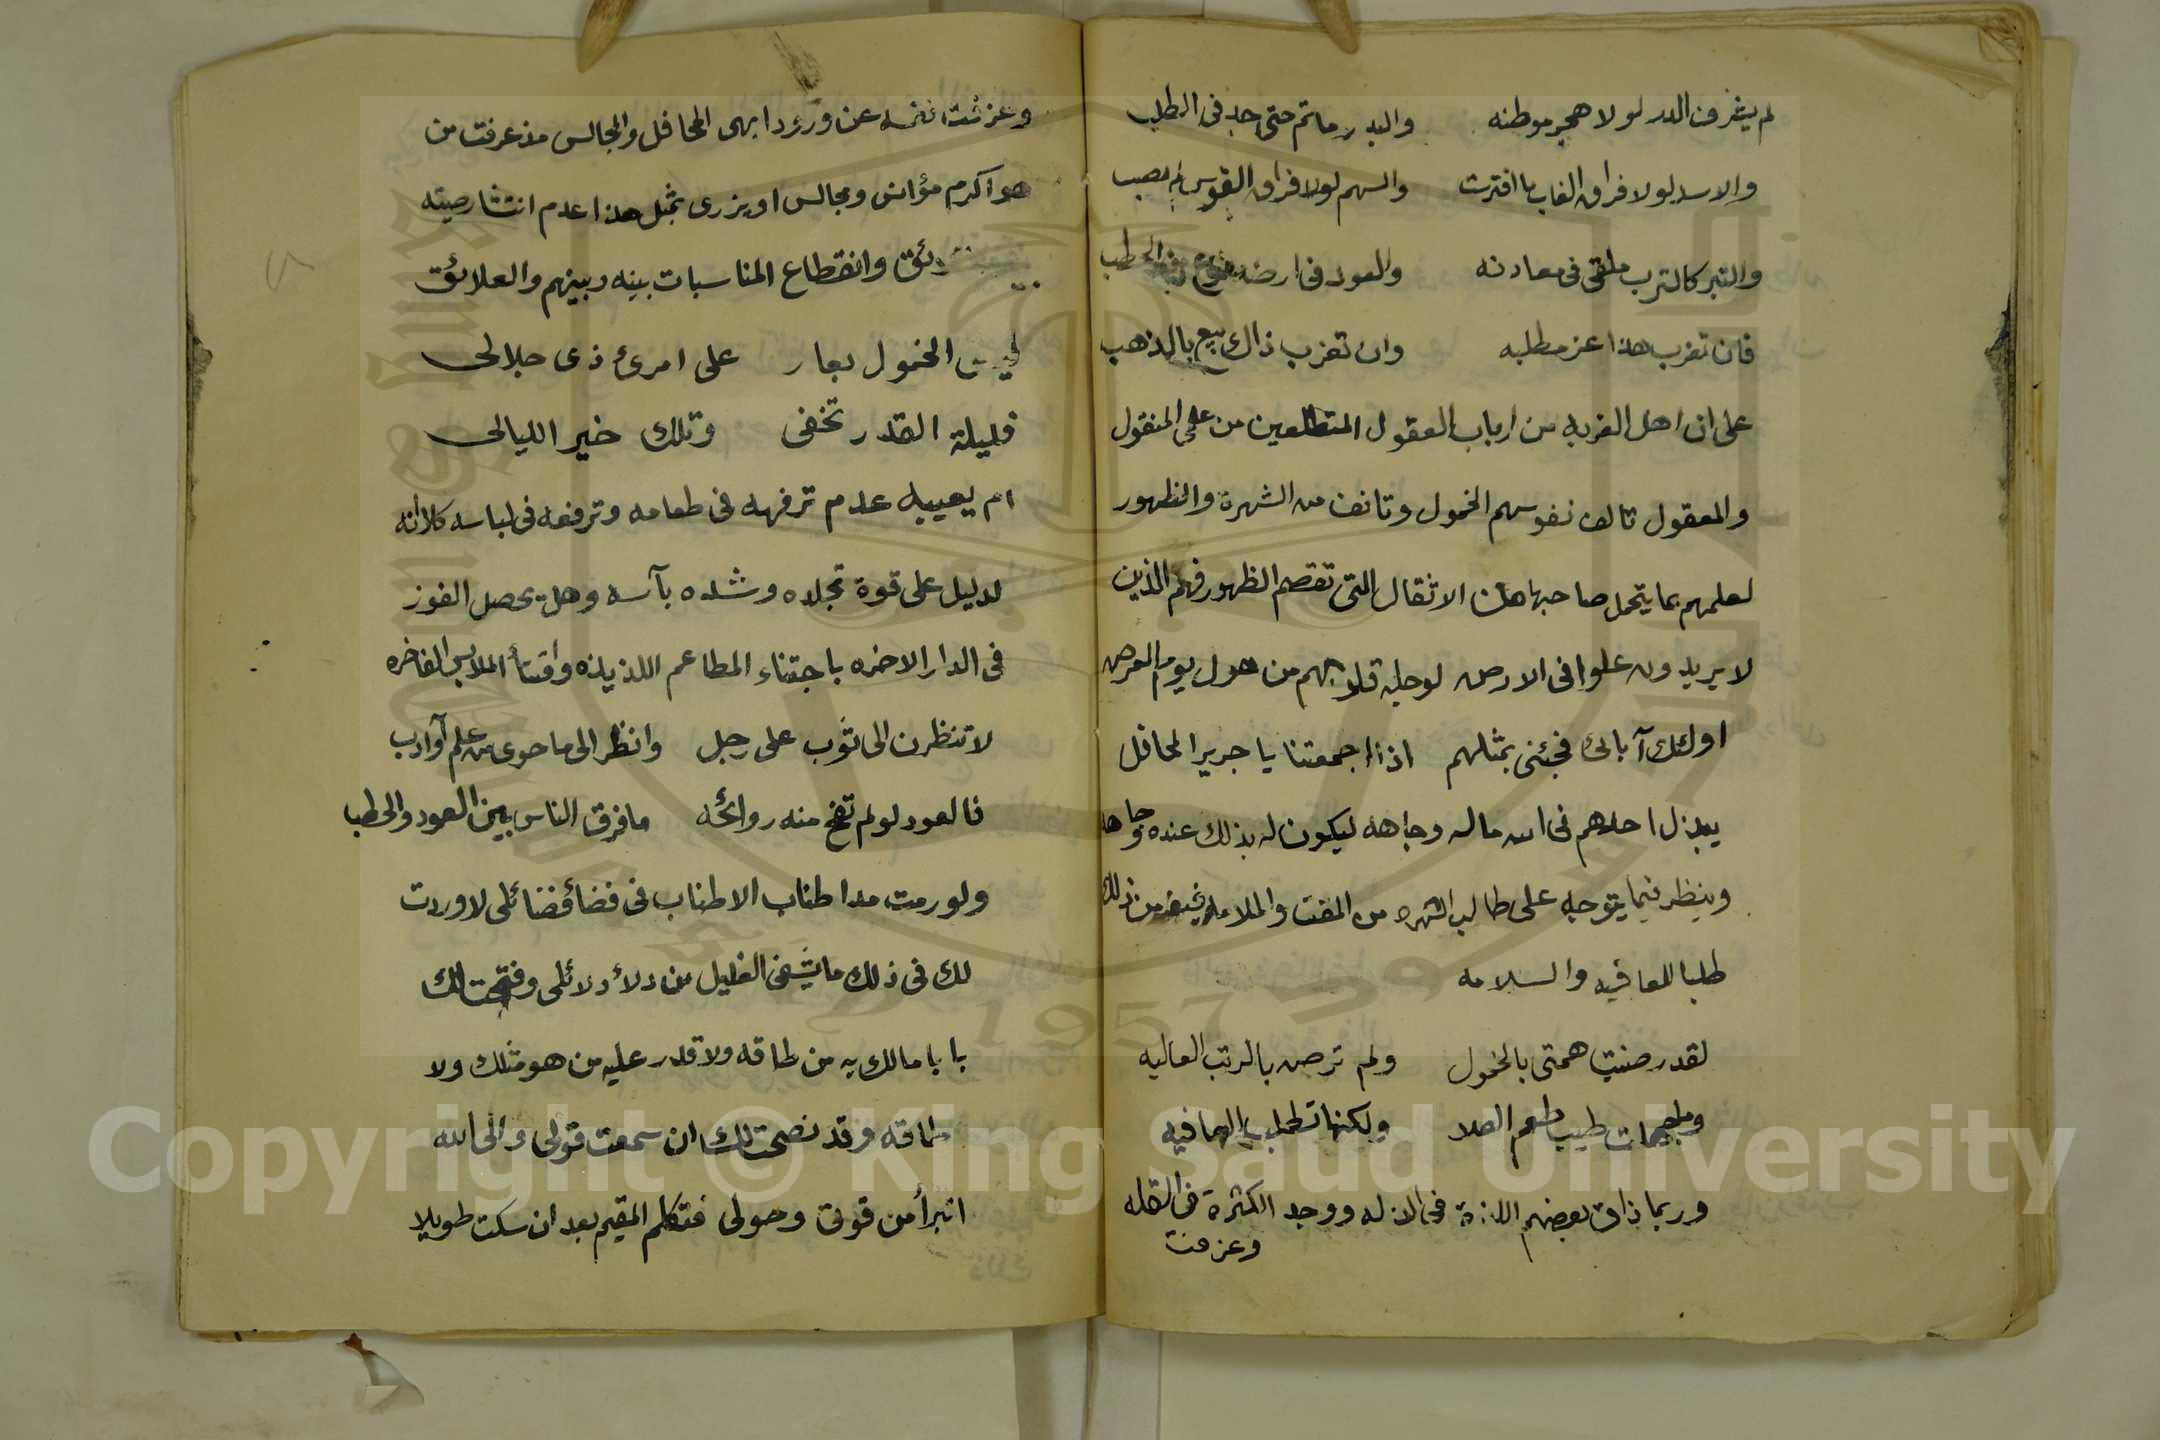 لم يشرف الدر لولا هجر موطنه والبدر ماتم حتى جد فى الطلب
والاسد لولا فراق الغاب ما افترست والسهم لولا فراق القوس لم يصب
والتبر كالترب ملقى فى معادنه والعود فى ارضه نوع من الحطب
فان تغرب هذا عز مطلبه وان تغرب ذاك بيع بالذهب
على ان اهل الغربه من ارباب العقول المتطلعين من على المنقول
والمعقول تالف نفوسهم الخمول وتانف من الشهرة والظهور
لعلمهم بما يتحمل صاحبها من الاثقال التى تقصم الظهور فهم الذين
لا يريدون علوا فى الارض لوجله قلوبهم من هول يوم العرض
اولئك آبائ فجئنى بمثلهم اذا اجمعتنا يا جرير المحافل
يبذل احدهم فى الله ماله وجاهه ليكون له بذلك عنده وجاهه
وينظر فيما يتوجه على طالب الشهره من المقت والملامه من ذلك
طلبا للعافيه والسلامه
لقد رضيت همتى بالخمول ولم ترض بالرتب العاليه
وما جهلت طيب طعم العلا ولكنها تطلب العافيه
وربما ذاق بعضهم اللذة فى الذله ووجد الكثرة فى القله
وعزفت
وعزفت نفسه عن ورردا بهى المحافل والمجالس مذ عرفت من
هو اكرم مؤانس ومجالس او يزرى بمثل هذا عدم انتشار صيته
وانقطاع المناسبات بينه وبينهم والعلائق
ليس الخمول بعار على امرئ ذى جلالى
فليلة القدر تخفى وتلك خير الليالى
ام يعيبه عدم ترفهه فى طعامه وترفعه فى لباسه كلا انه
لدليل على قوة تجلده وشده بآسه وهل يحصل الفوز
فى الدار الاخره باجتناء المطاعم اللذيذه واقتنأ الملابس الفاخره
لا تنظرن الى ثوب على رجل وانظر الى ما حوى من علم آو ادب
فالعود لو لم تفح منه روائحه ما فرق الناس بين العود والحطبا
ولو رمت مد اطناب الاطناب فى فضأ فضائلى لاوردت
لك فى ذلك ما يشفى الغليل من دلأ دلائلى وفتحت لك
بابا مالك به من طاقه ولا قدر عليه من هو مثلك ولا
طاقه وقد نصحت لك ان سمعت قولى والى الله
اتبرأ من قوتى وحولى فتكلم المقيم بعد ان سكت طويلا
Copyright © King Saud University
1957